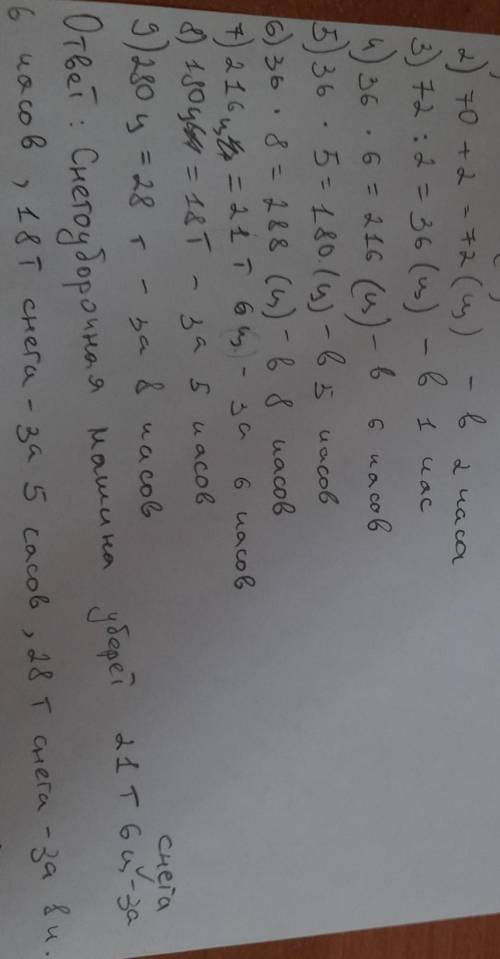 2) 70 + 2 = 72 (ц) - в 2 часа
3) 72 : 2 = 36 (ц) - в 1 час
4) 36 · 6 = 216 (ц) - в 6 часов
5) 36 · 5 = 180 (ц) - в 5 часов
6) 36 · 8 = 288 (ц) - в 8 часов
7) 216 ц = 21 т 6 (ц) - за 6 часов
8) 180 ц = 18 т - за 5 часов
9) 280 ц = 28 т - за 8 часов
снега
Ответ: Снегоуборочная машина уберёт 21 т 6 ц - за
6 часов, 18 т снега - за 5 сасов, 28 т снега - за 8 ч.